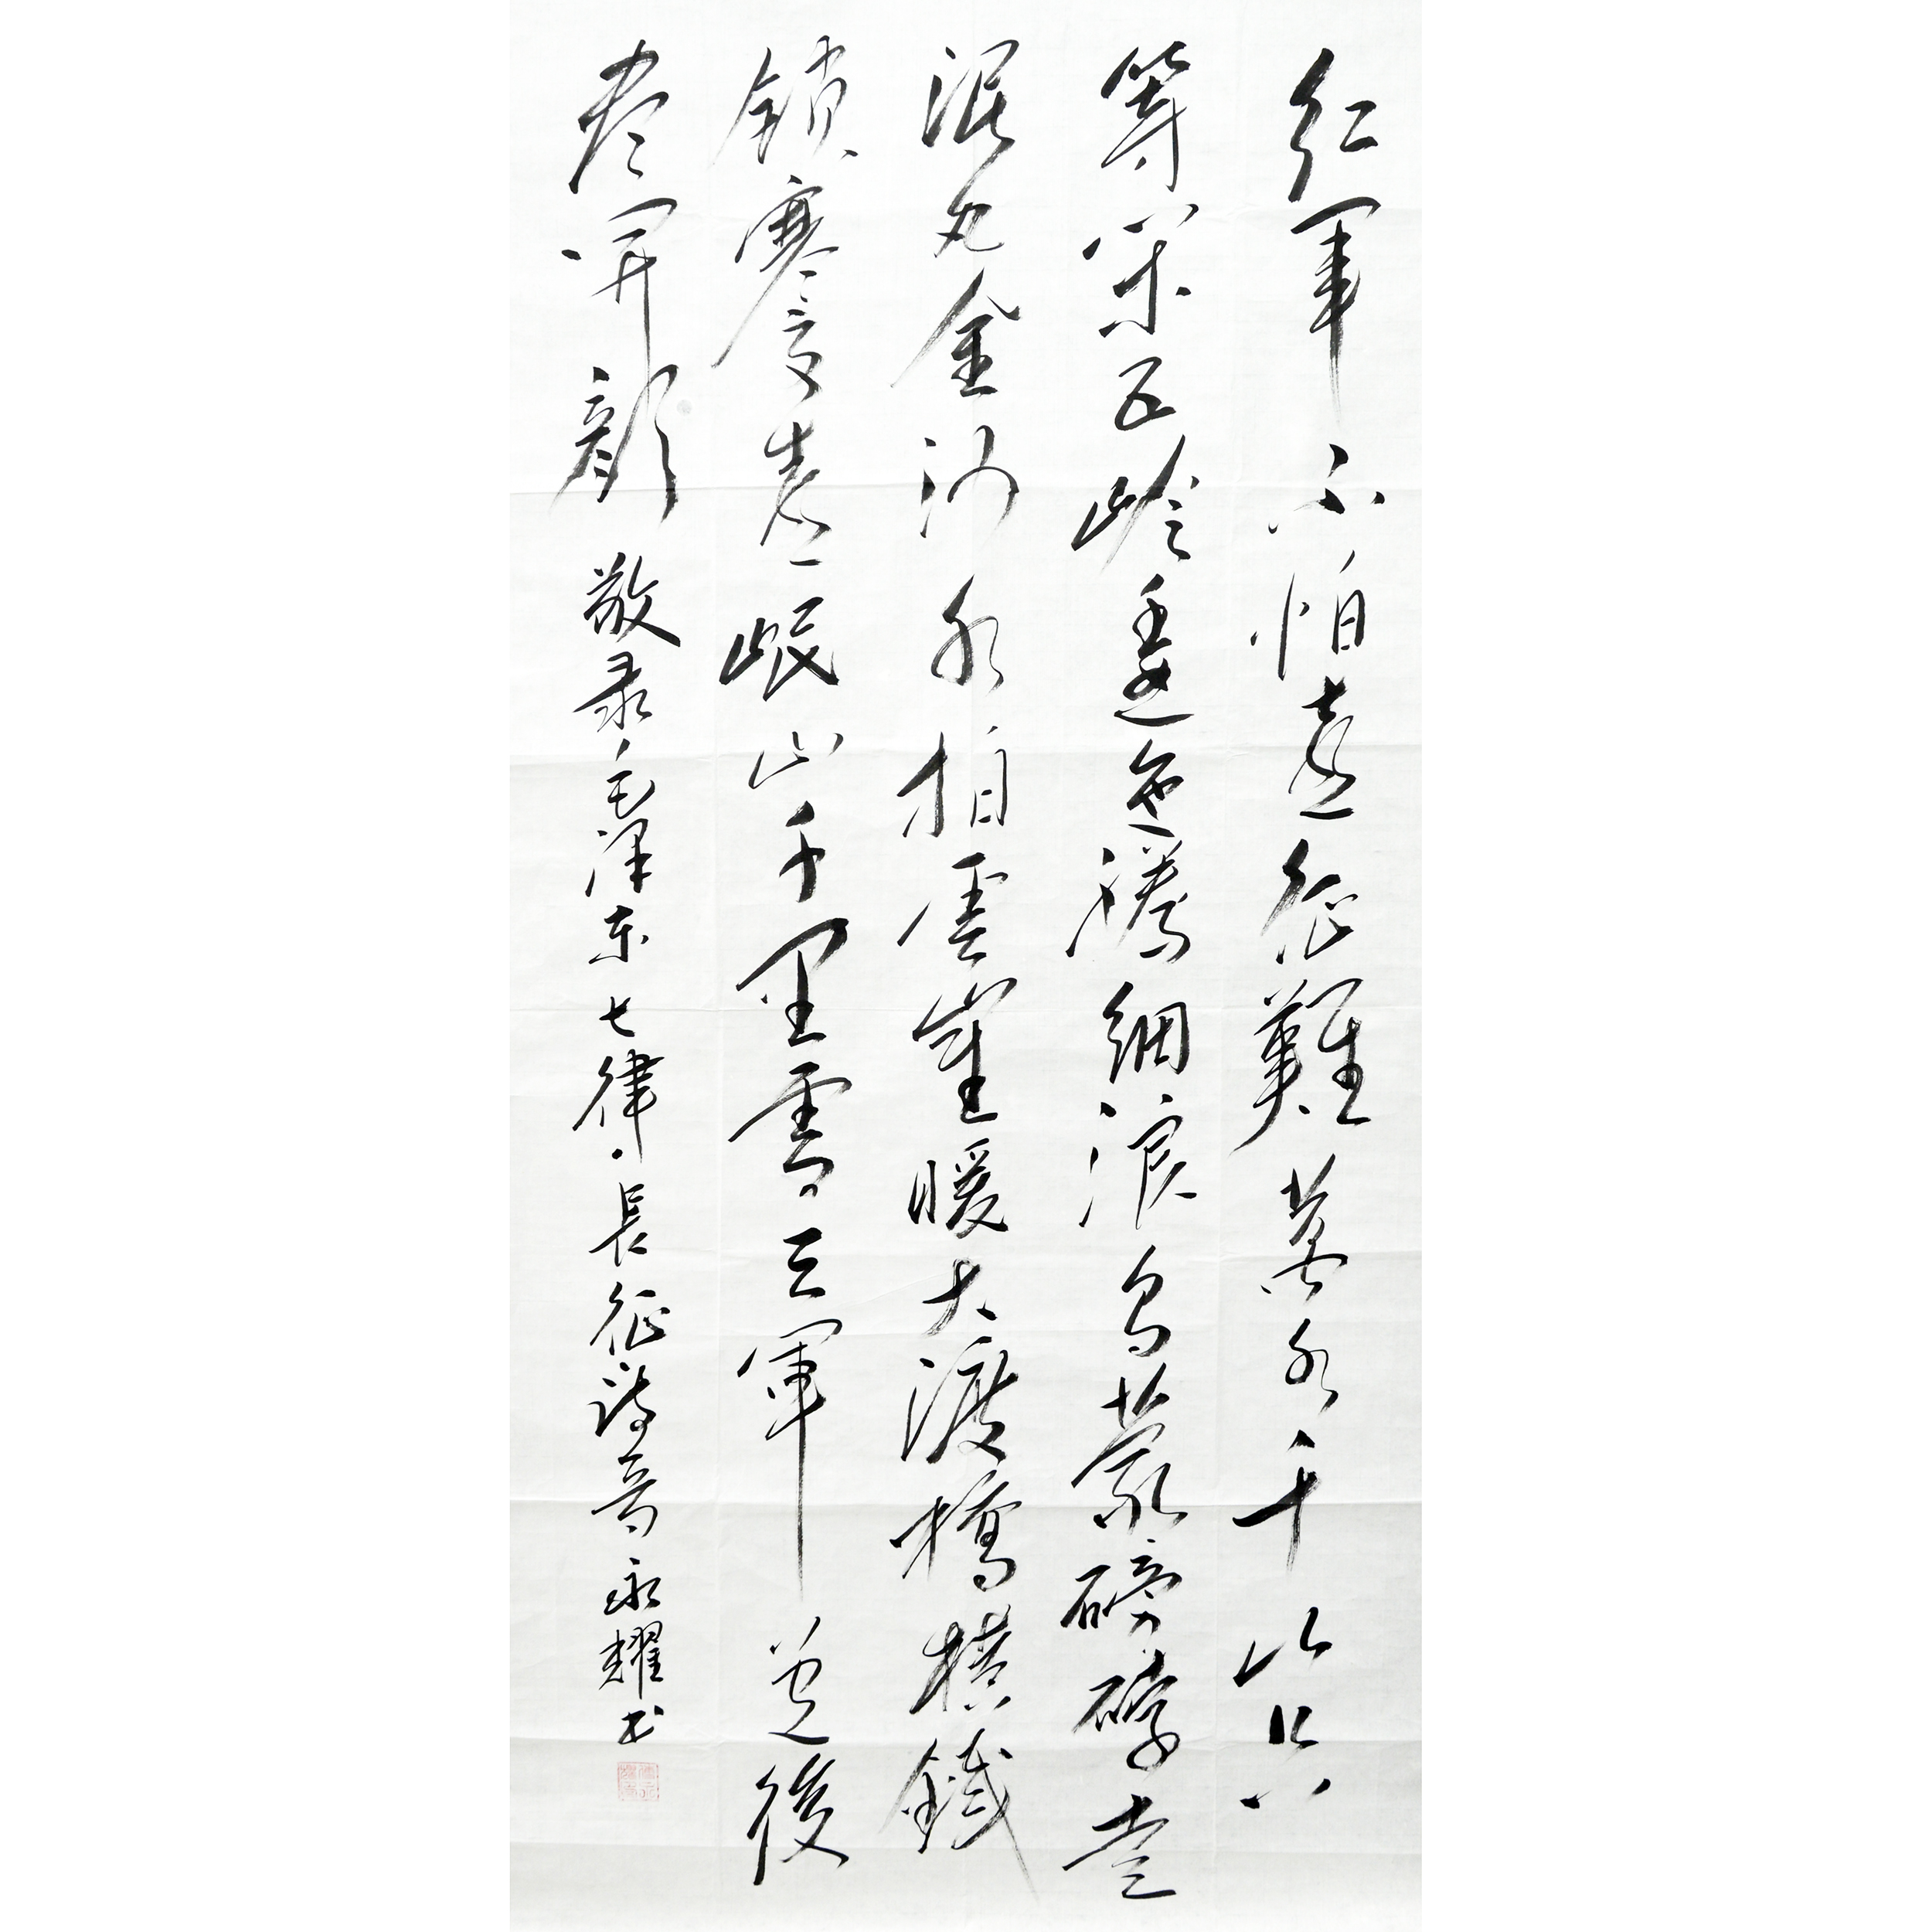 红军不怕遠征難萬水千山只
等闲五岭逶迤腾細浪乌蒙磅礴走
泥丸金沙水拍雲崖暖大渡橋横鐵
鎖寒更喜岷山千里雪三軍過後
尽开颜 敬录毛泽东七律·長征诗 永耀书